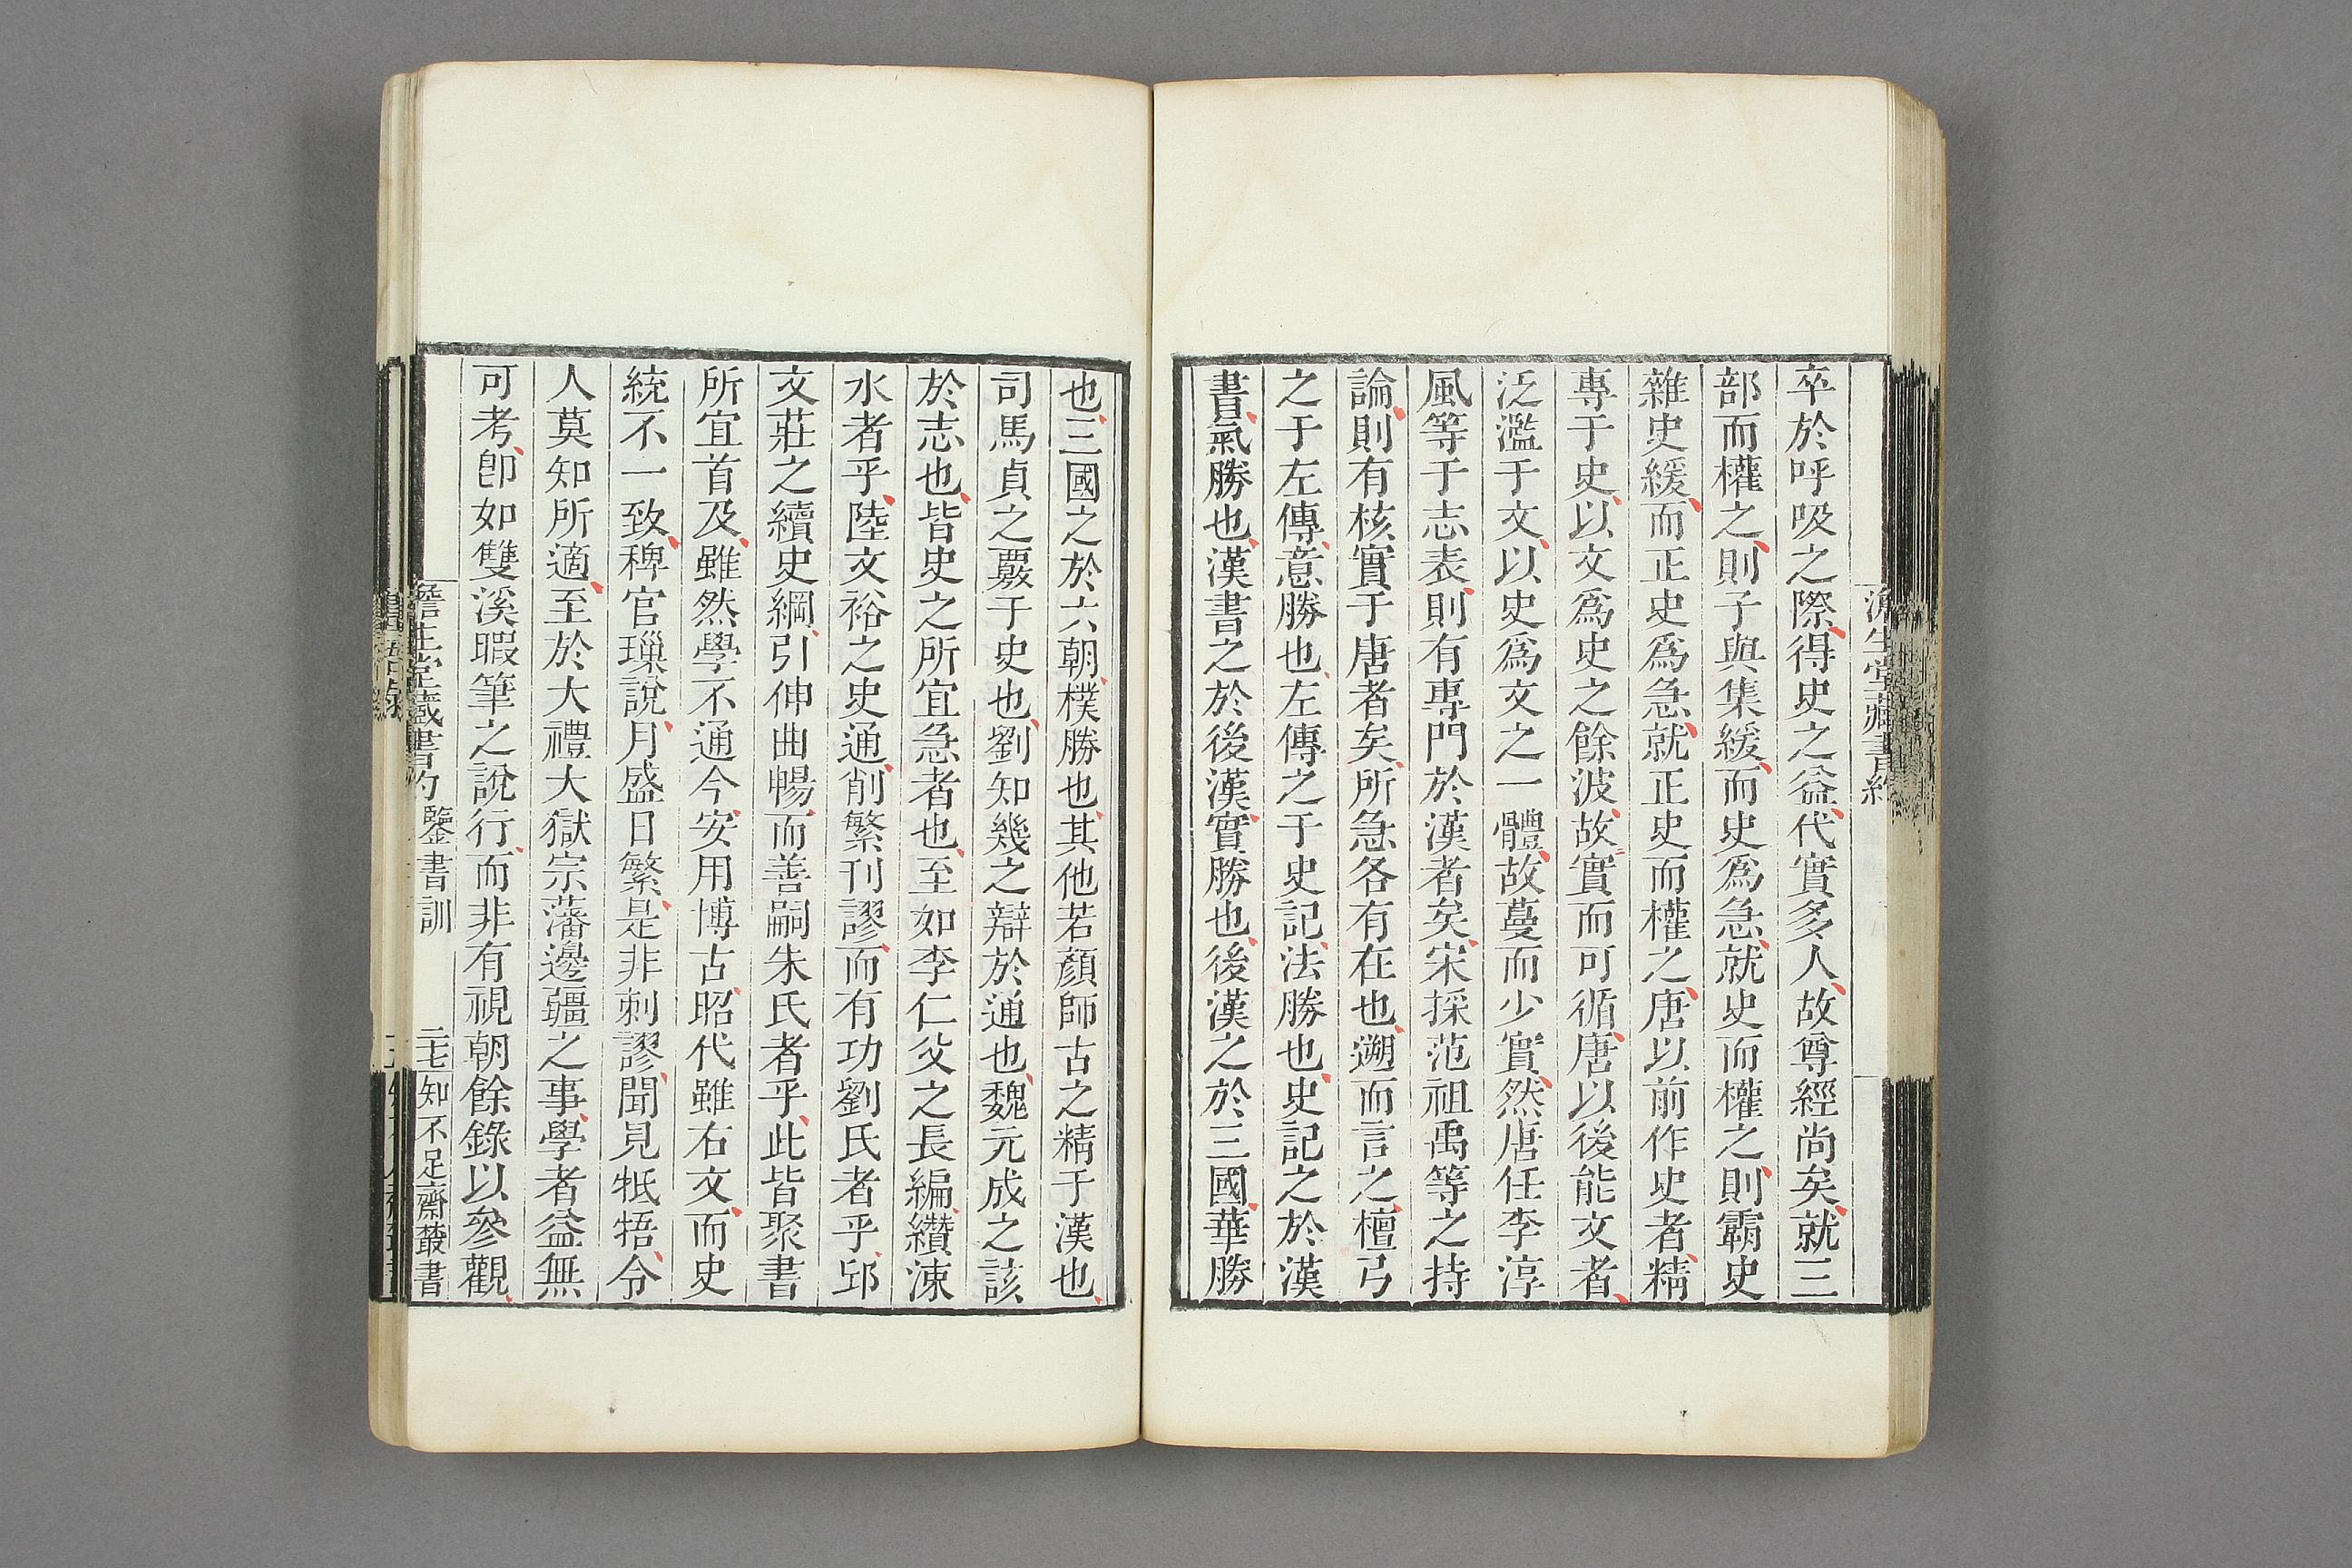 卒於呼吸之際得史之益代實多人故尊經尚矣就三
部而權之則子與集緩而史爲急就史而權之則霸史
雜史緩而正史爲急就正史而權之唐以前作史者精
專于史以文爲史之餘波故實而可循唐以後能文者
泛濫于文以史爲文之一體故蔓而少實然唐任李淳
風等于志表則有專門於漢者矣宋採范祖禹等之持
論則有核實于唐者矣所急各有在也遡而言之檀弓
之于左傳意勝也左傳之于史記法勝也史記之於漢
書氣勝也漢書之於後漢實勝也後漢之於三國華勝
也三國之於六朝樸勝也其他若顏師古之精于漢也
司馬貞之覈于史也劉知幾之辯於通也魏元成之該
於志也皆史之所宜急者也至如李仁父之長編纘涑
水者乎陸文裕之史通削繁刊謬而有功劉氏者乎邱
文莊之續史綱引伸曲暢而善嗣朱氏者乎此皆聚書
所宜首及雖然學不通今安用博古昭代雖右文而史
統不一致稗官璅說月盛日繁是非刺謬聞見牴牾令
人莫知所適至於大禮大獄宗藩邊疆之事學者益無
可考卽如雙溪暇筆之說行而非有視朝餘錄以參觀
澹生堂藏書約 鑒書訓 二七 知不足齋叢書